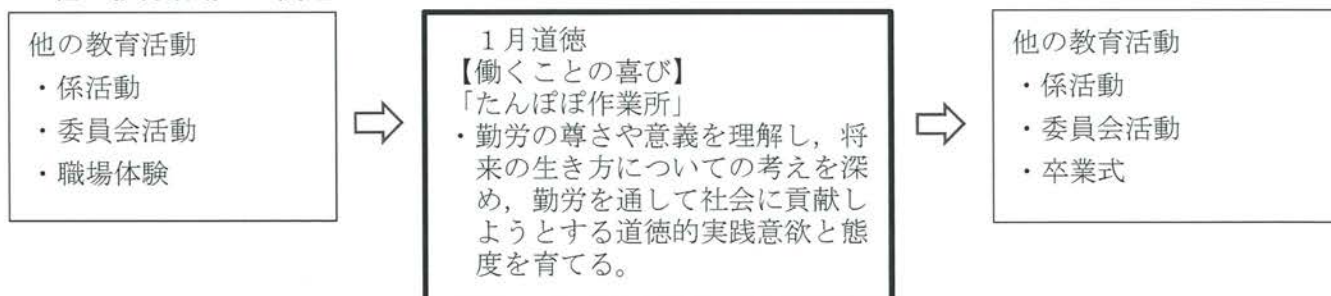 他の教育活動
・係活動
・委員会活動
・職場体験
１月道徳
【働くことの喜び】
「たんぽぽ作業所」
・勤労の尊さや意義を理解し，将
来の生き方についての考えを深
め，勤労を通して社会に貢献し
ようとする道徳的実践意欲と態
度を育てる。
他の教育活動
・係活動
・委員会活動
・卒業式